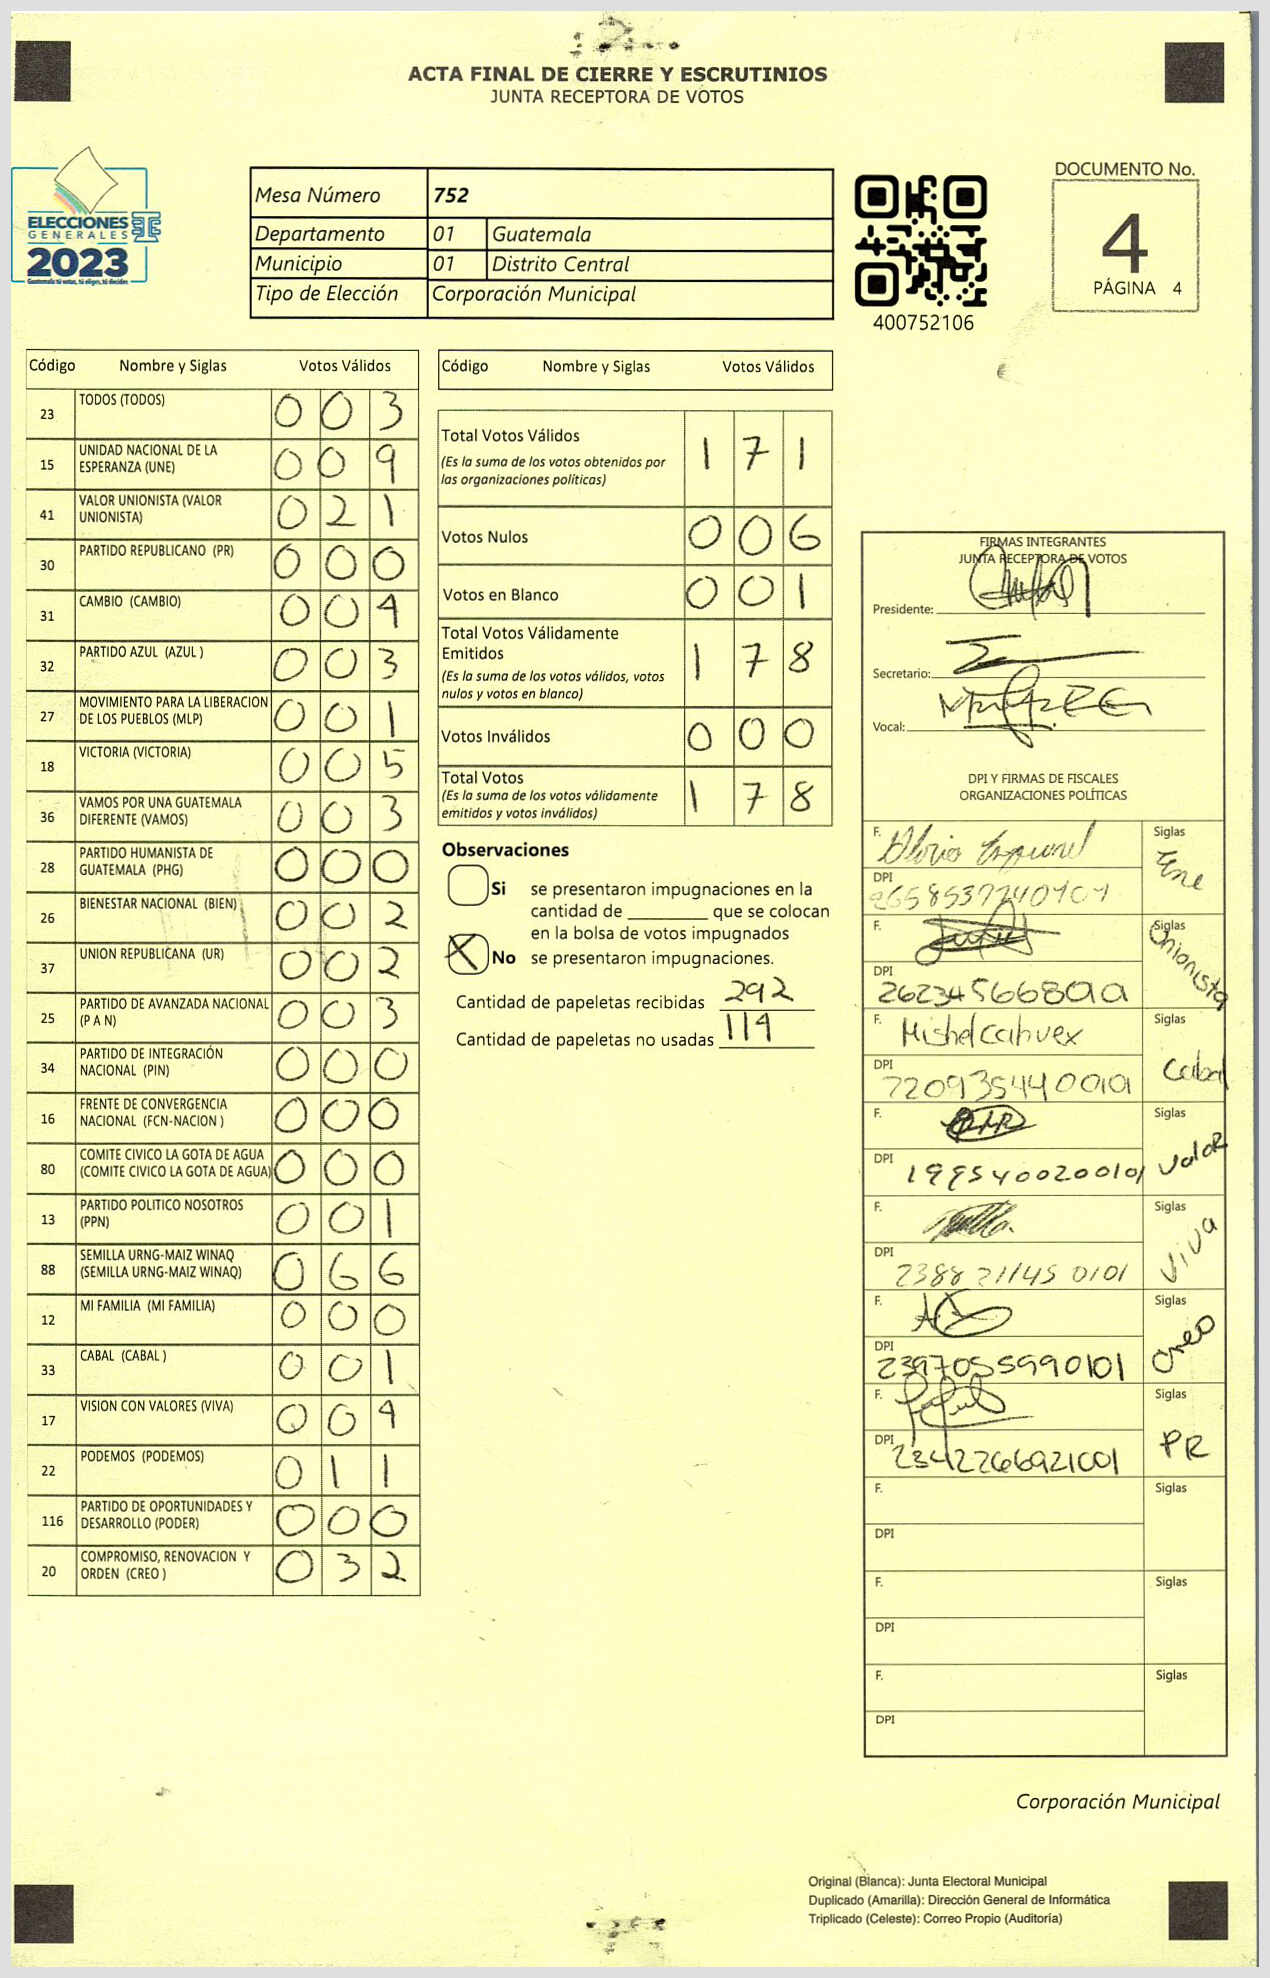 ACTA FINAL DE CIERRE Y ESCRUTINIOS
JUNTA RECEPTORA DE VOTOS
ELECCIONES
GENERALES
2023
Guatemala tú votas, tú eliges, tú decides
Mesa Número 752
Departamento 01 Guatemala
Municipio 01 Distrito Central
Tipo de Elección Corporación Municipal
400752106
DOCUMENTO No.
4
PÁGINA 4
Código Nombre y Siglas Votos Válidos
23 TODOS (TODOS) 0 0 3
15 UNIDAD NACIONAL DE LA ESPERANZA (UNE) 0 0 9
41 VALOR UNIONISTA (VALOR UNIONISTA) 0 2 1
30 PARTIDO REPUBLICANO (PR) 0 0 0
31 CAMBIO (CAMBIO) 0 0 4
32 PARTIDO AZUL (AZUL ) 0 0 3
27 MOVIMIENTO PARA LA LIBERACION DE LOS PUEBLOS (MLP) 0 0 1
18 VICTORIA (VICTORIA) 0 0 5
36 VAMOS POR UNA GUATEMALA DIFERENTE (VAMOS) 0 0 3
28 PARTIDO HUMANISTA DE GUATEMALA (PHG) 0 0 0
26 BIENESTAR NACIONAL (BIEN) 0 0 2
37 UNION REPUBLICANA (UR) 0 0 2
25 PARTIDO DE AVANZADA NACIONAL (P A N) 0 0 3
34 PARTIDO DE INTEGRACIÓN NACIONAL (PIN) 0 0 0
16 FRENTE DE CONVERGENCIA NACIONAL (FCN-NACION ) 0 0 0
80 COMITE CIVICO LA GOTA DE AGUA (COMITE CIVICO LA GOTA DE AGUA) 0 0 0
13 PARTIDO POLITICO NOSOTROS (PPN) 0 0 1
88 SEMILLA URNG-MAIZ WINAQ (SEMILLA URNG-MAIZ WINAQ) 0 6 6
12 MI FAMILIA (MI FAMILIA) 0 0 0
33 CABAL (CABAL ) 0 0 1
17 VISION CON VALORES (VIVA) 0 0 4
22 PODEMOS (PODEMOS) 0 1 1
116 PARTIDO DE OPORTUNIDADES Y DESARROLLO (PODER) 0 0 0
20 COMPROMISO, RENOVACION Y ORDEN (CREO ) 0 3 2
Código Nombre y Siglas Votos Válidos
Total Votos Válidos 1 7 1
(Es la suma de los votos obtenidos por
las organizaciones políticas)
Votos Nulos 0 0 6
Votos en Blanco 0 0 1
Total Votos Válidamente
Emitidos 1 7 8
(Es la suma de los votos válidos, votos
nulos y votos en blanco)
Votos Inválidos 0 0 0
Total Votos 1 7 8
(Es la suma de los votos válidamente
emitidos y votos inválidos)
Observaciones
Si se presentaron impugnaciones en la
cantidad de ________ que se colocan
en la bolsa de votos impugnados
X No se presentaron impugnaciones.
Cantidad de papeletas recibidas 292
Cantidad de papeletas no usadas 114
FIRMAS INTEGRANTES
JUNTA RECEPTORA DE VOTOS
Presidente:
Secretario:
Vocal:
DPI Y FIRMAS DE FISCALES
ORGANIZACIONES POLÍTICAS
F. Siglas Une
DPI
F. Siglas Unionista
DPI
F. Mishel Cahuex Siglas Cabal
DPI
F. Siglas Valor
DPI 1995400200101
F. Siglas Viva
DPI 2388 21145 0101
F. Siglas Creo
DPI 2397055990101
F. Siglas PR
DPI
F. Siglas
DPI
F. Siglas
DPI
F. Siglas
DPI
Corporación Municipal
Original (Blanca): Junta Electoral Municipal
Duplicado (Amarilla): Dirección General de Informática
Triplicado (Celeste): Correo Propio (Auditoría)